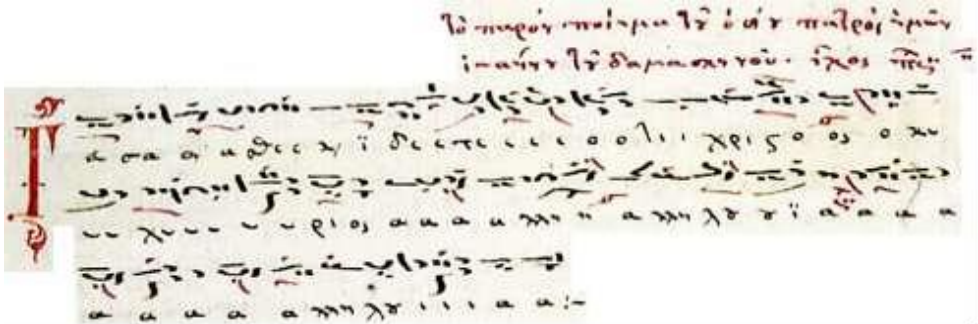 Τὸ παρὸν ποίημα τοῦ ὁσίου πατρὸς ἡμῶν
ἰωάννου τοῦ δαμασκηνοῦ· ἦχος πλ
α σα α α θε ε κ ϊ δε ε τε ε ε ε ο ο τι ι χρι ϛο ο ος ο κυ
υ υ χυ υ υ υ υ ρι ος α α α α λλη η α λλη λου ου ϊ α α α α
α α α α α λλη λου ι ι ι α α :~